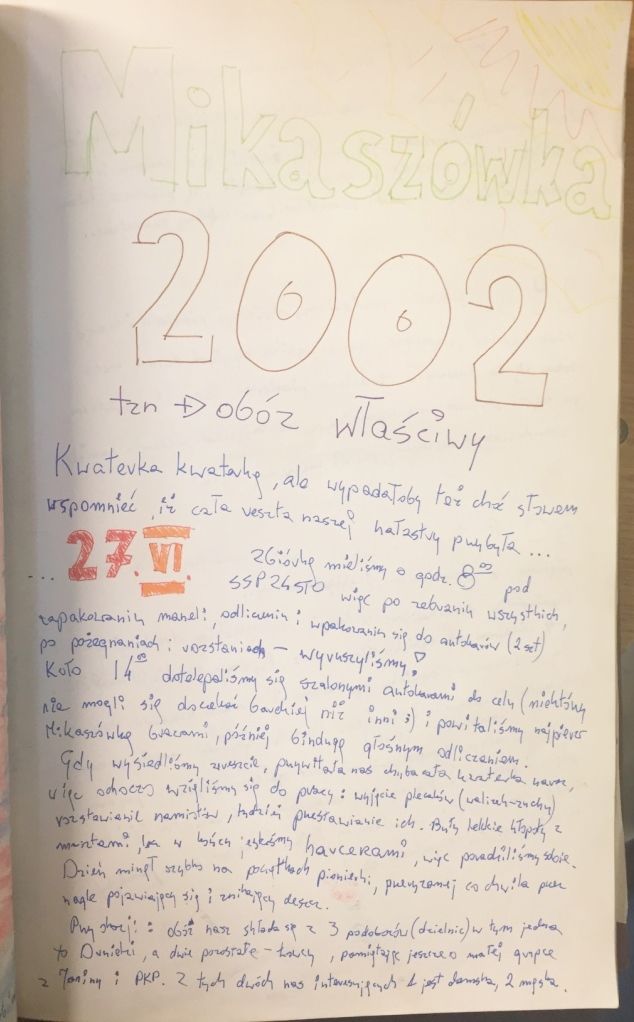 Mikaszówka
2002
tzn → obóz właściwy
Kwaterka kwaterką, ale wypadałoby też choć słowem
wspomnieć, iż cała reszta naszej hałastry przybyła...
... 27. VI. Zbiórkę mieliśmy o godz. 8⁰⁰ pod
SSP 24 STO więc po zebraniu wszystkich,
zapakowaniu maneli, odliczeniu i wpakowaniu się do autokarów (2 szt)
po pożegnaniach i rozstaniach – wyruszyliśmy!
Koło 14⁰⁰ dotelepaliśmy się szalonymi autokarami do celu (niektórzy
nie mogli się doczekać bardziej niż inni :) i powitaliśmy najpierw
Mikaszówkę brawami, później bindugę głośnym odliczaniem.
Gdy wysiedliśmy wreszcie, przywitała nas chyba cała kwaterka naraz,
więc ochoczo wzięliśmy się do pracy: wyjęcie plecaków (walizek-zuchy)
rozstawianie namiotów, tudzież przestawianie ich. Były lekkie kłopoty z
masztami, lecz w końcu jesteśmy harcerami, więc poradziliśmy sobie
Dzień minął szybko na początkach pionierki, przerywanej co chwila przez
nagle pojawiający się i znikający deszcz.
Przy okazji: obóz nasz składa się z 3 podobozów (dzielnic) w tym jedna
to Dunieki, a dwie pozostałe – Łowcy, pamiętając jeszcze o małej grupce
z Janiny i PKP. Z tych dwóch nas interesujących 1 jest damska, 2 męska.